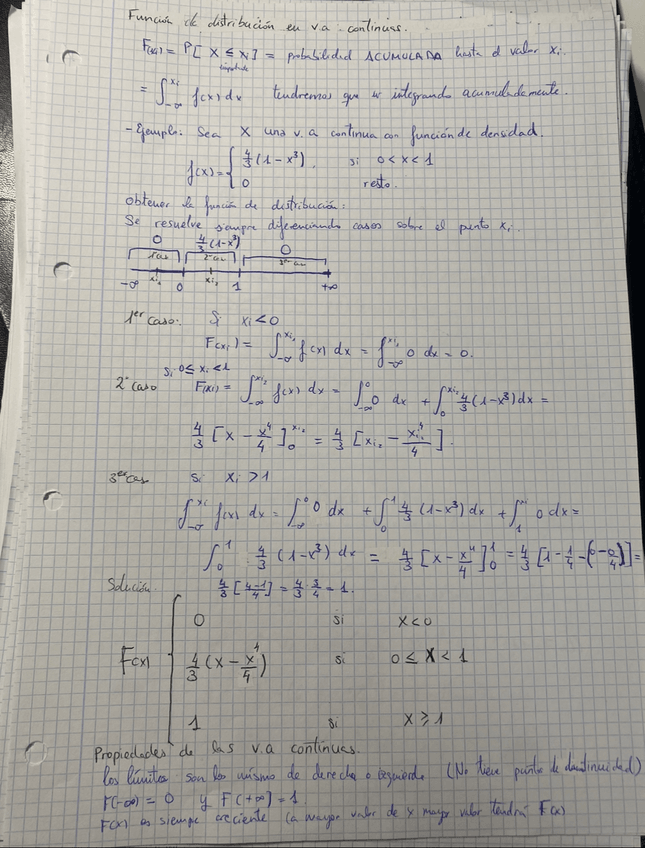 Función de distribución en v.a. continuas.
F(xi) = P[X ≤ xi] = probabilidad ACUMULADA hasta el valor xi.
= ∫_{-∞}^{xi} f(x) dx tendremos que ir integrando acumuladamente.
- Ejemplo: Sea X una v.a continua con función de densidad.
f(x) = { 4/3 (1-x³). si 0<x<1
0 resto.
obtener la función de distribución:
Se resuelve siempre diferenciando casos sobre el punto xi.
0 4/3 (1-x³) 0
1er caso 2º caso 3er caso
-∞ xi₁ 0 xi₂ 1 +∞
1er caso: Si xi < 0
F(xi₁) = ∫_{-∞}^{xi₁} f(x) dx = ∫_{-∞}^{xi₁} 0 dx = 0.
Si 0 ≤ xi < 1
2º caso F(xi) = ∫_{-∞}^{xi₂} f(x) dx = ∫_{-∞}^{0} 0 dx + ∫_{0}^{xi₂} 4/3 (1-x³) dx =
4/3 [x - x⁴/4]_{0}^{xi₂} = 4/3 [xi₂ - xi₂⁴/4].
3er caso si xi > 1
∫_{-∞}^{xi} f(x) dx = ∫_{-∞}^{0} 0 dx + ∫_{0}^{1} 4/3 (1-x³) dx + ∫_{1}^{xi} 0 dx =
∫_{0}^{1} 4/3 (1-x³) dx = 4/3 [x - x⁴/4]_{0}^{1} = 4/3 [1 - 1/4 - (0 - 0/4)] =
Solución. 4/3 [4-1/4] = 4/3 · 3/4 = 1.
0 si x<0
F(x) { 4/3 (x - x⁴/4) si 0 ≤ x < 1
1 si x ≥ 1
Propiedades de las v.a continuas.
los límites son los mismo de derecha o izquierda (No tiene puntos de discontinuidad)
F(-∞) = 0 y F(+∞) = 1
F(x) es siempre creciente (a mayor valor de x mayor valor tendrá F(x)